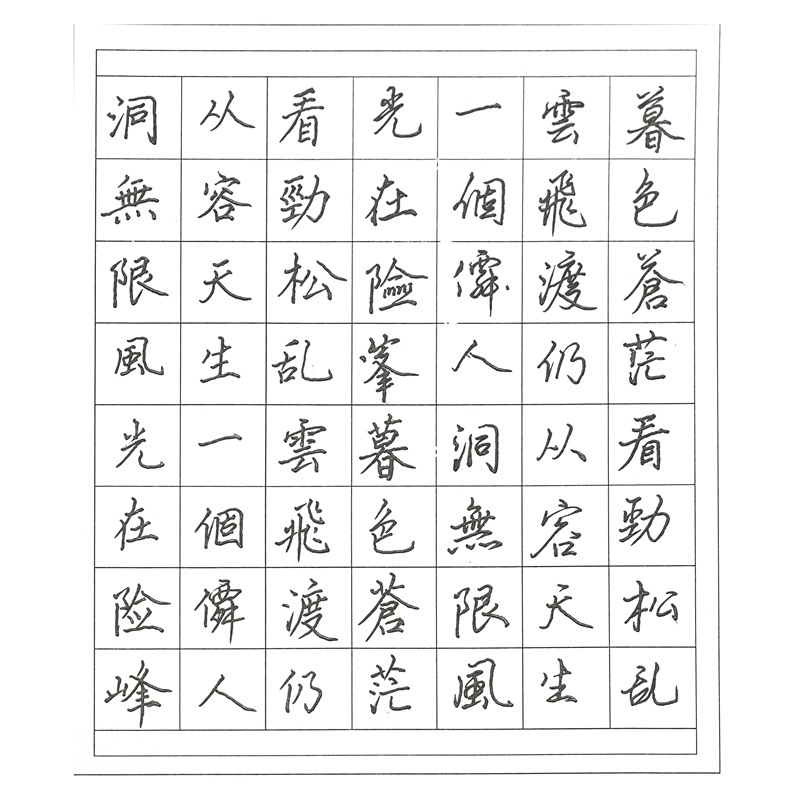 暮色蒼茫看勁松乱
雲飛渡仍从容天生
一個僊人洞無限風
光在險峯暮色蒼茫
看勁松乱雲飛渡仍
从容天生一個僊人
洞無限風光在险峰